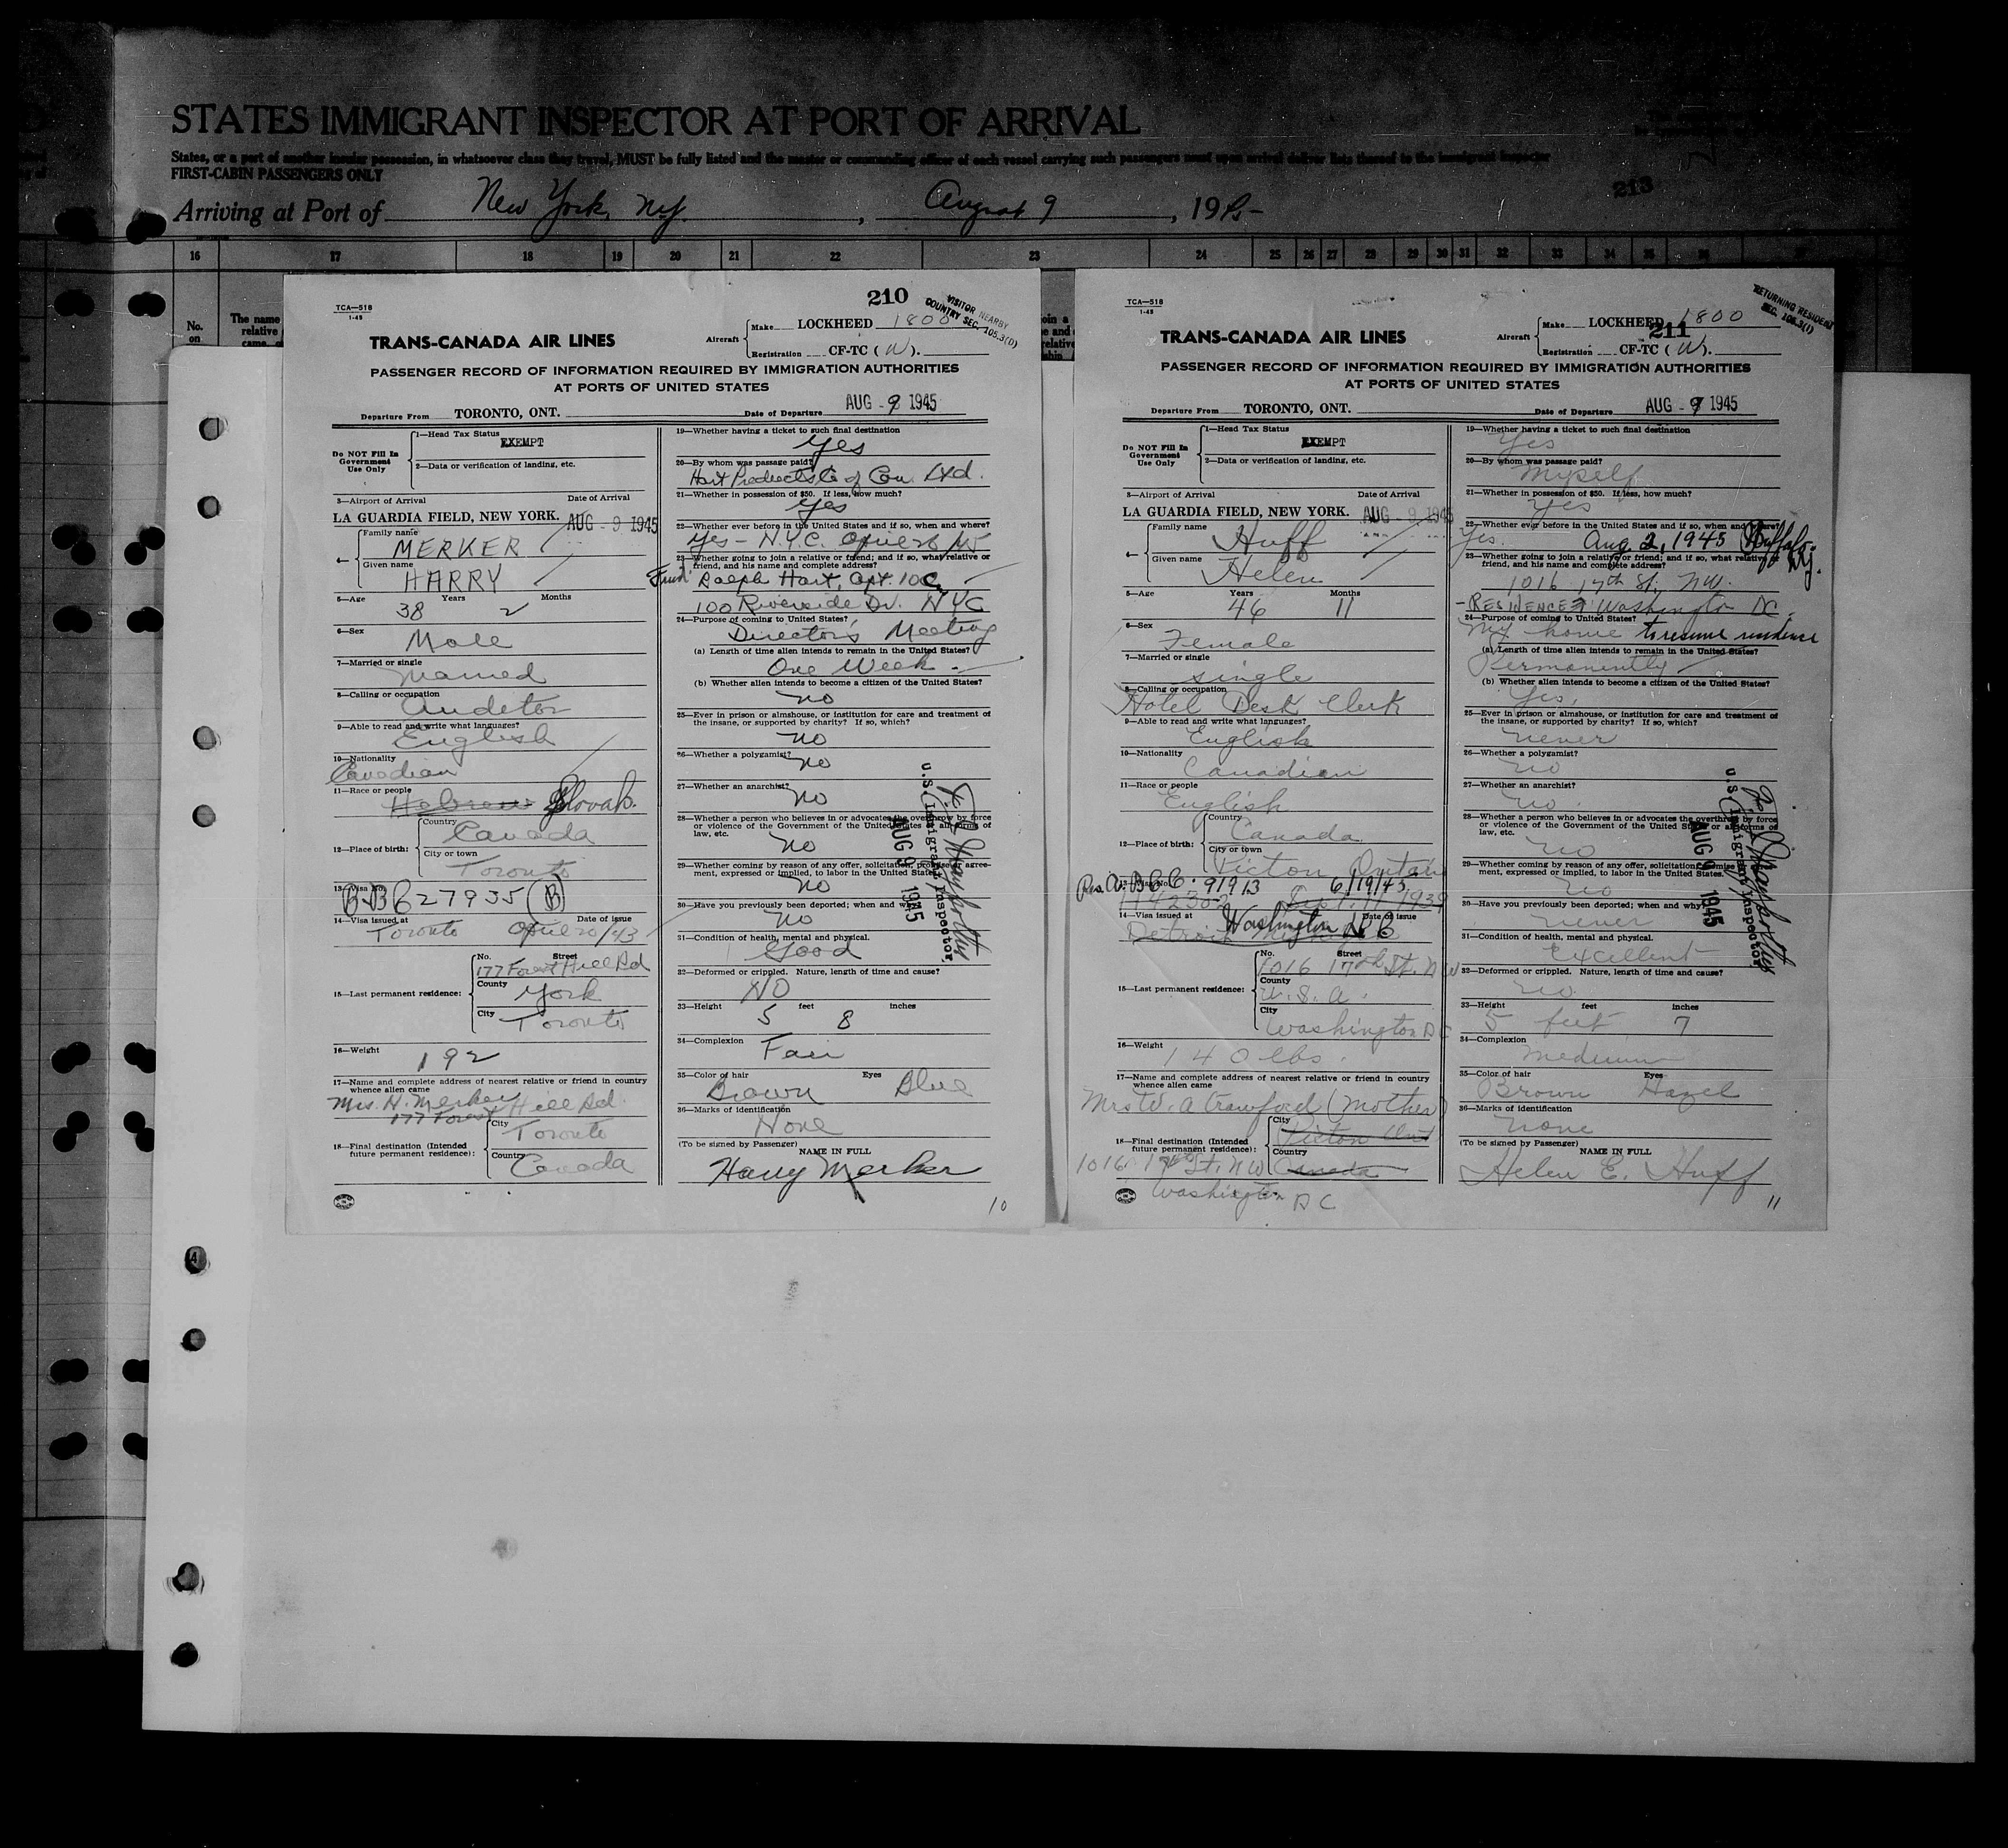 STATES IMMIGRANT INSPECTOR AT PORT OF ARRIVAL
States, or a port of another insular possession, in whatsoever class they travel, MUST be fully listed and the master or commanding officer of each vessel carrying such passengers must upon arrival deliver lists thereof to the immigrant inspector
FIRST-CABIN PASSENGERS ONLY
213
Arriving at Port of New York, N.Y., August 9, 19
16 17 18 19 20 21 22 23 24 25 26 27 28 29 30 31 32 33 34 35
No. on
The name relative came
210
VISITOR NEARBY COUNTRY SEC. 105.3(D)
TCA—518
1-45
TRANS-CANADA AIR LINES
Aircraft Make LOCKHEED 1800
Registration CF-TC (W).
PASSENGER RECORD OF INFORMATION REQUIRED BY IMMIGRATION AUTHORITIES
AT PORTS OF UNITED STATES
Departure From TORONTO, ONT. Date of Departure AUG - 9 1945
Do NOT Fill In Government Use Only
1—Head Tax Status
EXEMPT
2—Data or verification of landing, etc.
3—Airport of Arrival Date of Arrival
LA GUARDIA FIELD, NEW YORK. AUG - 9 1945
4— Family name
MERKER
Given name
HARRY
5—Age Years Months
38 2
6—Sex
Male
7—Married or single
Married
8—Calling or occupation
Auditor
9—Able to read and write what languages?
English
10—Nationality
Canadian
11—Race or people
Hebrew Slovak.
12—Place of birth: Country
Canada
City or town
Toronto
13—Visa No.
627935 (B)
14—Visa issued at Date of issue
Toronto April 20/43
15—Last permanent residence: No. Street
177 Forest Hill Rd
County
York
City
Toronto
16—Weight
192
17—Name and complete address of nearest relative or friend in country whence alien came
Mrs. H. Merker
177 Forest Hill Rd.
18—Final destination (Intended future permanent residence): City
Toronto
Country
Canada
19—Whether having a ticket to such final destination
Yes
20—By whom was passage paid?
Hart Products Co of Can. Ltd.
21—Whether in possession of $50. If less, how much?
Yes
22—Whether ever before in the United States and if so, when and where?
Yes - N.Y.C. April 26/45
23—Whether going to join a relative or friend; and if so, what relative or friend, and his name and complete address?
Ralph Hart, Apt. 10C
100 Riverside Dr. NYC
24—Purpose of coming to United States?
Director's Meeting
(a) Length of time alien intends to remain in the United States?
One Week
(b) Whether alien intends to become a citizen of the United States?
No
25—Ever in prison or almshouse, or institution for care and treatment of the insane, or supported by charity? If so, which?
No
26—Whether a polygamist?
No
27—Whether an anarchist?
No
28—Whether a person who believes in or advocates the overthrow by force or violence of the Government of the United States or all forms of law, etc.
No
29—Whether coming by reason of any offer, solicitation, promise or agreement, expressed or implied, to labor in the United States.
No
30—Have you previously been deported; when and why?
No
31—Condition of health, mental and physical.
Good
32—Deformed or crippled. Nature, length of time and cause?
NO
33—Height feet inches
5 8
34—Complexion
Fair
35—Color of hair Eyes
Brown Blue
36—Marks of identification
None
(To be signed by Passenger)
NAME IN FULL
Harry Merker
AUG 9 1945
U.S. Immigrant Inspector.
10
211
RETURNING RESIDENT SEC. 105.3(1)
TCA—518
1-45
TRANS-CANADA AIR LINES
Aircraft Make LOCKHEED 1800
Registration CF-TC (W).
PASSENGER RECORD OF INFORMATION REQUIRED BY IMMIGRATION AUTHORITIES
AT PORTS OF UNITED STATES
Departure From TORONTO, ONT. Date of Departure AUG - 9 1945
Do NOT Fill In Government Use Only
1—Head Tax Status
EXEMPT
2—Data or verification of landing, etc.
3—Airport of Arrival Date of Arrival
LA GUARDIA FIELD, NEW YORK. AUG - 9 1945
4— Family name
Huff
Given name
Helen
5—Age Years Months
46 11
6—Sex
Female
7—Married or single
single
8—Calling or occupation
Hotel Desk Clerk
9—Able to read and write what languages?
English
10—Nationality
Canadian
11—Race or people
English
12—Place of birth: Country
Canada
City or town
Picton Ontario
13—Visa No.
91913 6/19/43
Sept. 11 1939
14—Visa issued at Date of issue
Detroit Washington DC
15—Last permanent residence: No. Street
1016 17th St. NW
County
U.S.A.
City
Washington DC
16—Weight
140 lbs.
17—Name and complete address of nearest relative or friend in country whence alien came
Mrs W. A Crawford (Mother)
18—Final destination (Intended future permanent residence): City
Picton Ont
Country
Canada
1016 17th St. NW
Washington DC
19—Whether having a ticket to such final destination
Yes
20—By whom was passage paid?
Myself
21—Whether in possession of $50. If less, how much?
Yes
22—Whether ever before in the United States and if so, when and where?
Yes. Aug. 2, 1945 Buffalo NY.
23—Whether going to join a relative or friend; and if so, what relative or friend, and his name and complete address?
1016 17th St., NW.
-RESIDENCE Washington DC.
24—Purpose of coming to United States?
My home to resume residence
(a) Length of time alien intends to remain in the United States?
Permanently
(b) Whether alien intends to become a citizen of the United States?
Yes.
25—Ever in prison or almshouse, or institution for care and treatment of the insane, or supported by charity? If so, which?
never
26—Whether a polygamist?
no
27—Whether an anarchist?
no.
28—Whether a person who believes in or advocates the overthrow by force or violence of the Government of the United States or all forms of law, etc.
no
29—Whether coming by reason of any offer, solicitation, promise or agreement, expressed or implied, to labor in the United States.
no
30—Have you previously been deported; when and why?
never
31—Condition of health, mental and physical.
Excellent
32—Deformed or crippled. Nature, length of time and cause?
no.
33—Height feet inches
5 feet 7
34—Complexion
Medium
35—Color of hair Eyes
Brown Hazel
36—Marks of identification
none
(To be signed by Passenger)
NAME IN FULL
Helen E. Huff
AUG 9 1945
U.S. Immigrant Inspector
11